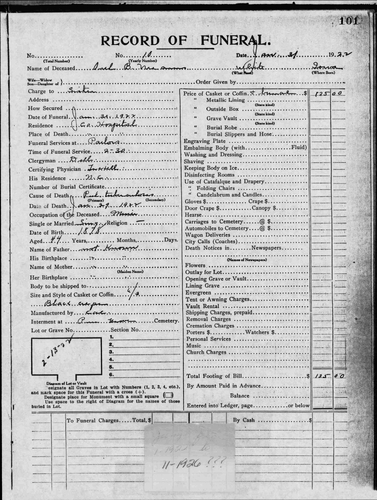 101
RECORD OF FUNERAL.
No. No. 10 Date Jan. 31 1922
(Total Number) (Yearly Number)
Name of Deceased B. White Iowa
(What Race) (Where Born)
Wife—Widow
Son—Daughter of Order Given by
Charge to
Address
How Secured
Date of Funeral Jan. 31. 1922
Residence Co. Hospital
Place of Death
Funeral Services at Parlors
Time of Funeral Service 2-30
Clergyman
Certifying Physician
His Residence
Number of Burial Certificate
Cause of Death tuberculosis
(Primary) (Secondary)
Date of Death Jan. 27 1922
Occupation of the Deceased Miner
Single or Married Sing. Religion
Date of Birth 1878
Aged 44 Years, Months, Days.
Name of Father not known
His Birthplace "
Name of Mother "
(Maiden Name)
Her Birthplace "
Body to be shipped to
Size and Style of Casket or Coffin
Black
Manufactured by
Interment at Cemetery.
Lot or Grave No. Section No.
2-13-22
1
2
3
4
5
6
Diagram of Lot or Vault
Designate all Graves in Lot with Numbers (1, 2, 3, 4, etc.), and mark space for this Funeral with a cross (×).
Designate place for Monument with a small square
Use space to the right of Diagram for the names of those buried in Lot.
Price of Casket or Coffin 125 00
(State kind)
" Metallic Lining
" Outside Box
(State kind)
" Grave Vault
(State kind)
" Burial Robe
(State kind)
" Burial Slippers and Hose
Engraving Plate
Embalming Body (with Fluid)
Washing and Dressing
Shaving
Keeping Body on Ice
Disinfecting Rooms
Use of Catafalque and Drapery
" Folding Chairs
" Candelabrum and Candles
Gloves $ Crape $
Door Crape $ Canopy $
Hearse
Carriages to Cemetery @ $
Automobiles to Cemetery @ $
Wagon Deliveries
City Calls (Coaches)
Death Notices in Newspapers
(Names of Newspapers)
Flowers
Outlay for Lot
Opening Grave or Vault
Lining Grave
Evergreen
Tent or Awning Charges
Vault Rental
Shipping Charges, prepaid
Removal Charges
Cremation Charges
Porters $ Watchers $
Personal Services
Music
Church Charges
Total Footing of Bill $ 125 00
By Amount Paid in Advance
Balance
Entered into Ledger, page or below
To Funeral Charges, Total $ By Cash $
11-1926 ???